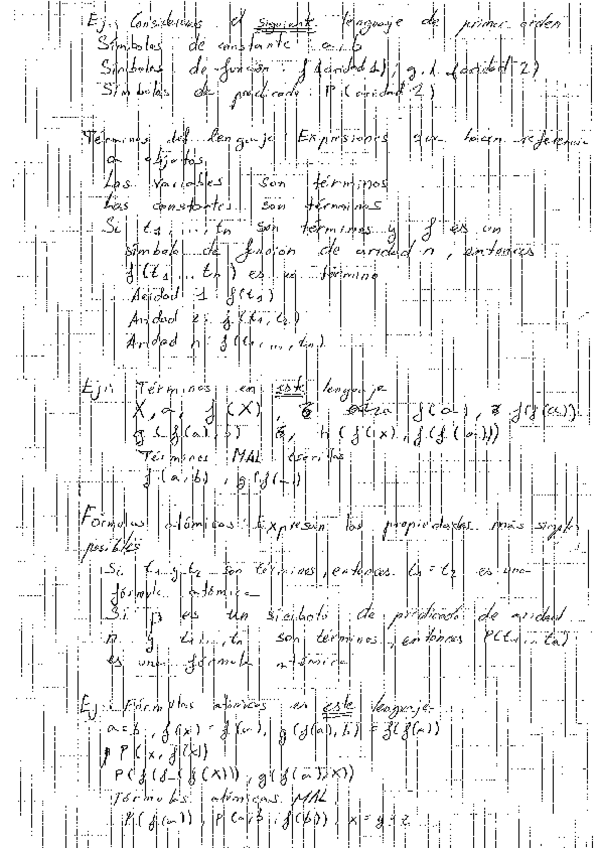 Ej: Consideremos el siguiente lenguaje de primer orden
Símbolos de constante a, b
Símbolos de función: f (aridad 1), g, h (aridad 2)
Símbolos de predicado: P (aridad 2)
Términos del lenguaje: Expresiones que hacen referencia
a objetos
Las variables son términos
Las constantes son términos
Si t1, ..., tn son términos y f es un
símbolo de función de aridad n, entonces
f(t1 ... tn) es un término
Aridad 1: f(t1)
Aridad 2: f(t1, t2)
Aridad n: f(t1, ..., tn)
Ej: Términos en este lenguaje
X, a, f(X), f(a), f(f(a))
g(f(a), b), h(f(x), f(f(a)))
Términos MAL escritos
f(a, b), g(f(a))
Fórmulas atómicas: Expresan las propiedades más simples
posibles
Si t1 y t2 son términos, entonces t1 = t2 es una
fórmula atómica
Si p es un símbolo de predicado de aridad
n y t1, ..., tn son términos, entonces P(t1 ... tn)
es una fórmula atómica
Ej: Fórmulas atómicas en este lenguaje
a = b, f(x) = f(a), g(f(a), b) = f(f(a))
P(x, f(x))
P(f(f(f(X))), g(f(a), X))
Fórmulas atómicas MAL
P(f(a)), P(a, b, f(b)), x = y = z